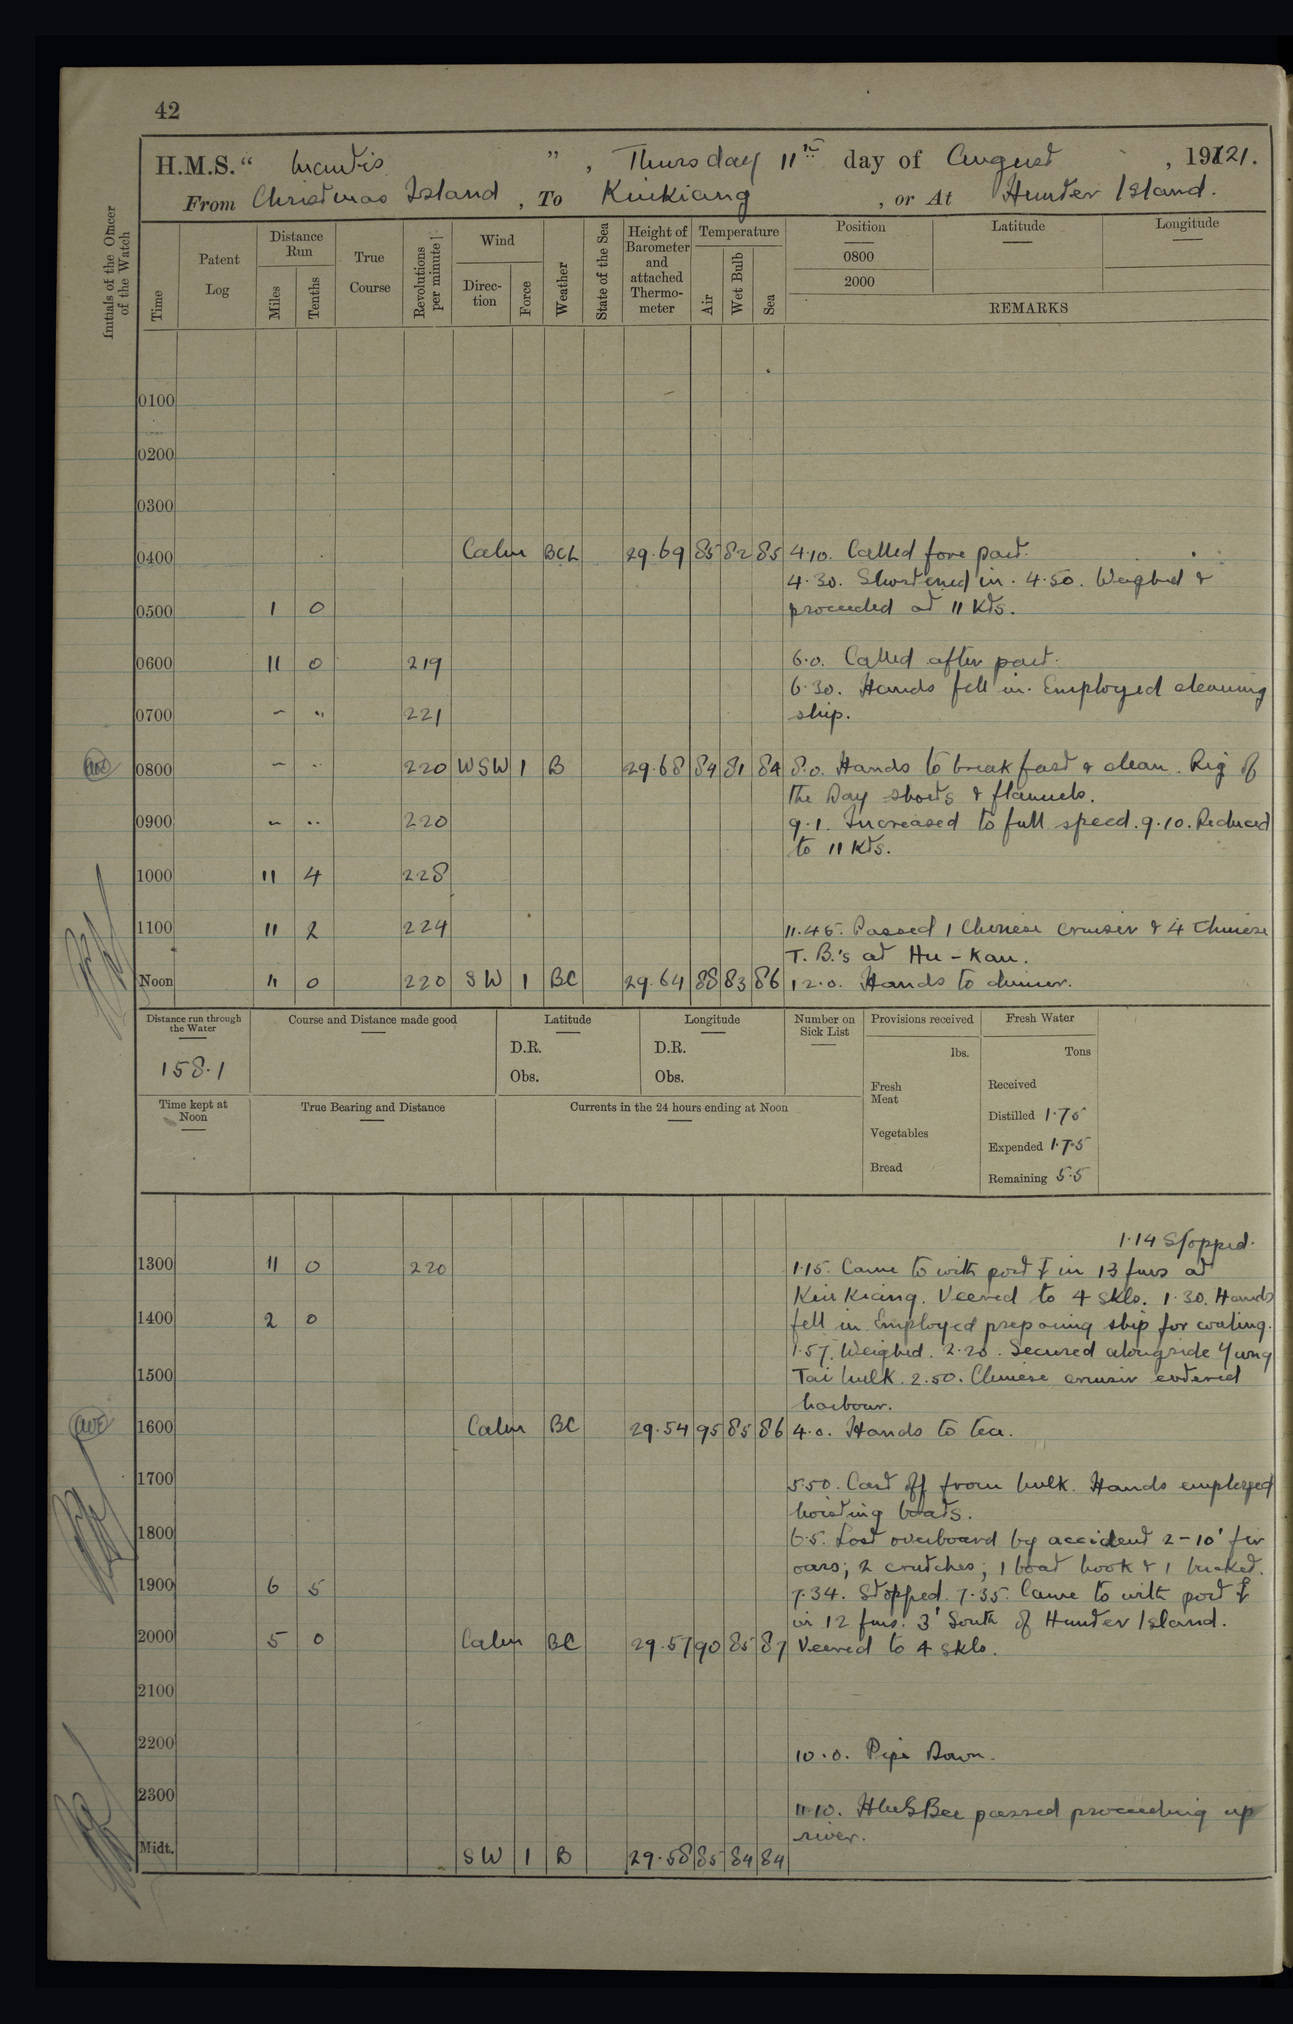 42
H.M.S. “ Mantis ” , Thursday 11th day of August , 19121.
From Christmas Island , To Kiukiang , or At Hunter Island.
Initials of the Officer of the Watch
Time
Patent Log
Distance Run
Miles
Tenths
True Course
Revolutions per minute
Wind
Direction
Force
Weather
State of the Sea
Height of Barometer and attached Thermometer
Temperature
Air
Wet Bulb
Sea
Position
0800
2000
Latitude
Longitude
REMARKS
0100
0200
0300
0400 Calm BCL 29.69 85 82 85 4.10. Called fore part.
4.30. Shortened in. 4.50. Weighed &
0500 1 0 proceeded at 11 Kts.
0600 11 0 219 6.0. Called after part.
6.30. Hands fell in. Employed cleaning
0700 ~ .. 221 ship.
0800 ~ .. 220 WSW 1 B 29.68 84 81 84 8.0. Hands to breakfast & clean. Rig of
the Day shorts & flannels.
0900 ~ .. 220 9.1. Increased to full speed. 9.10. Reduced
to 11 Kts.
1000 11 4 228
1100 11 2 224 11.45. Passed 1 Chinese cruiser & 4 Chinese
T. B.'s at Hu-Kau.
Noon 11 0 220 SW 1 BC 29.64 88 83 86 12.0. Hands to dinner.
Distance run through the Water
158.1
Course and Distance made good
Latitude
D.R.
Obs.
Longitude
D.R.
Obs.
Number on Sick List
Provisions received
lbs.
Fresh Meat
Vegetables
Bread
Fresh Water
Tons
Received
Distilled 1.75
Expended 1.75
Remaining 5.5
Time kept at Noon
True Bearing and Distance
Currents in the 24 hours ending at Noon
1.14 Stopped.
1300 11 0 220 1.15. Came to with port ⚓ in 13 fms at
Kiu Kiang. Veered to 4 skls. 1.30. Hands
1400 2 0 fell in. Employed preparing ship for coaling.
1.57. Weighed. 2.20. Secured alongside Yung
1500 Tai hulk. 2.50. Chinese cruiser entered
harbour.
1600 Calm BC 29.54 95 85 86 4.0. Hands to tea.
1700 5.50. Cast off from hulk. Hands employed
hoisting boats.
1800 6.5. Lost overboard by accident 2-10' fir
oars; 2 crutches; 1 boat hook & 1 bucket.
1900 6 5 7.34. Stopped. 7.35. Came to with port ⚓
in 12 fms. 3' South of Hunter Island.
2000 5 0 Calm BC 29.57 90 85 87 Veered to 4 skls.
2100
2200 10.0. Pipe Down.
2300 11.10. HMS Bee passed proceeding up
river.
Midt. SW 1 B 29.58 85 84 84